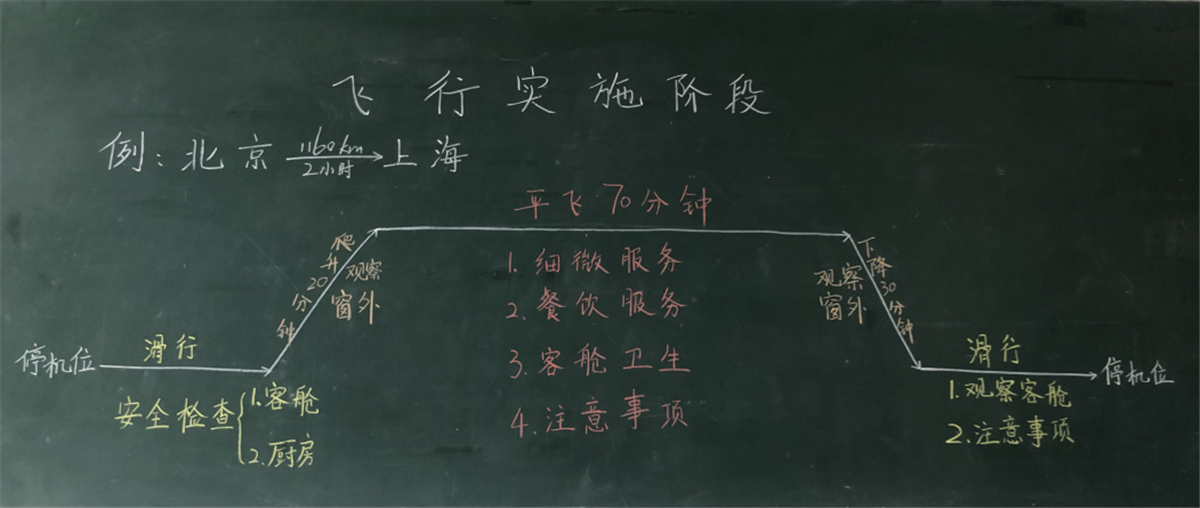 飞行实施阶段
例:北京 1160km 2小时 上海
平飞70分钟
爬升20分钟
观察
窗外
1.细微服务
2.餐饮服务
3.客舱卫生
4.注意事项
观察
窗外
下降30分钟
停机位
滑行
安全检查
1.客舱
2.厨房
滑行
停机位
1.观察客舱
2.注意事项